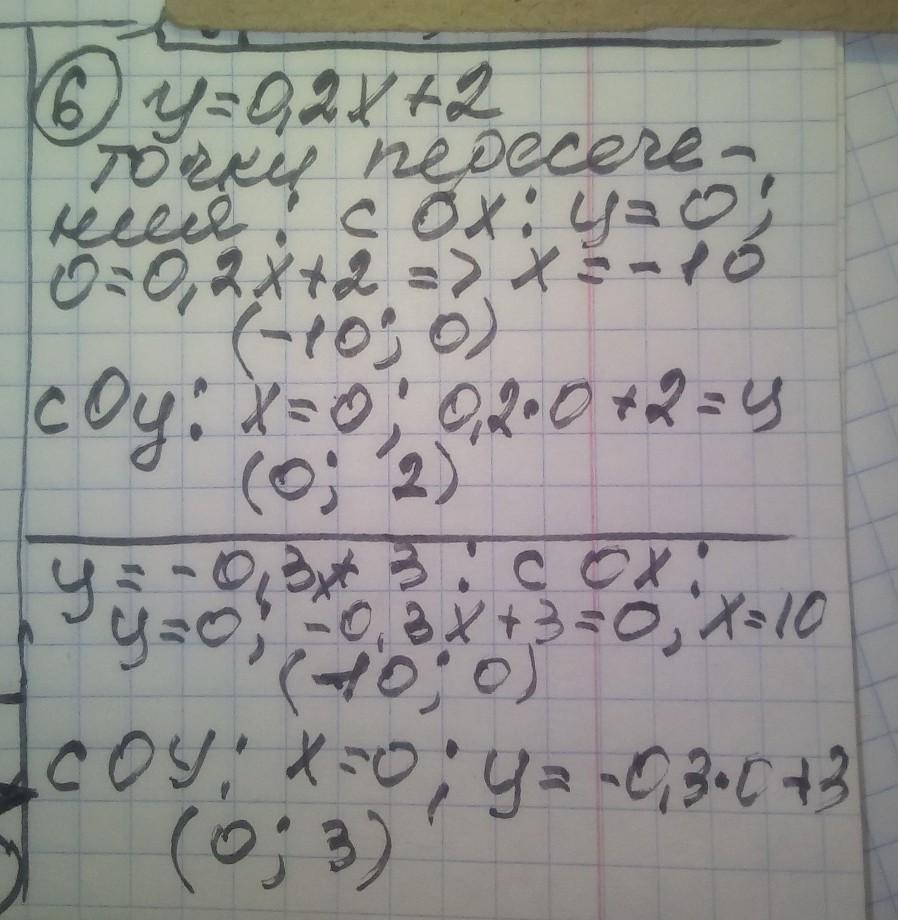 ⑥ y=0,2x+2
точки пересече-
ния: с Ox: y=0;
0=0,2x+2 => x=-10
(-10; 0)
с Oy: x=0; 0,2·0+2=y
(0; 2)
y=-0,3x+3: с Ox:
y=0; -0,3x+3=0; x=10
(10; 0)
с Oy: x=0; y=-0,3·0+3
(0; 3)